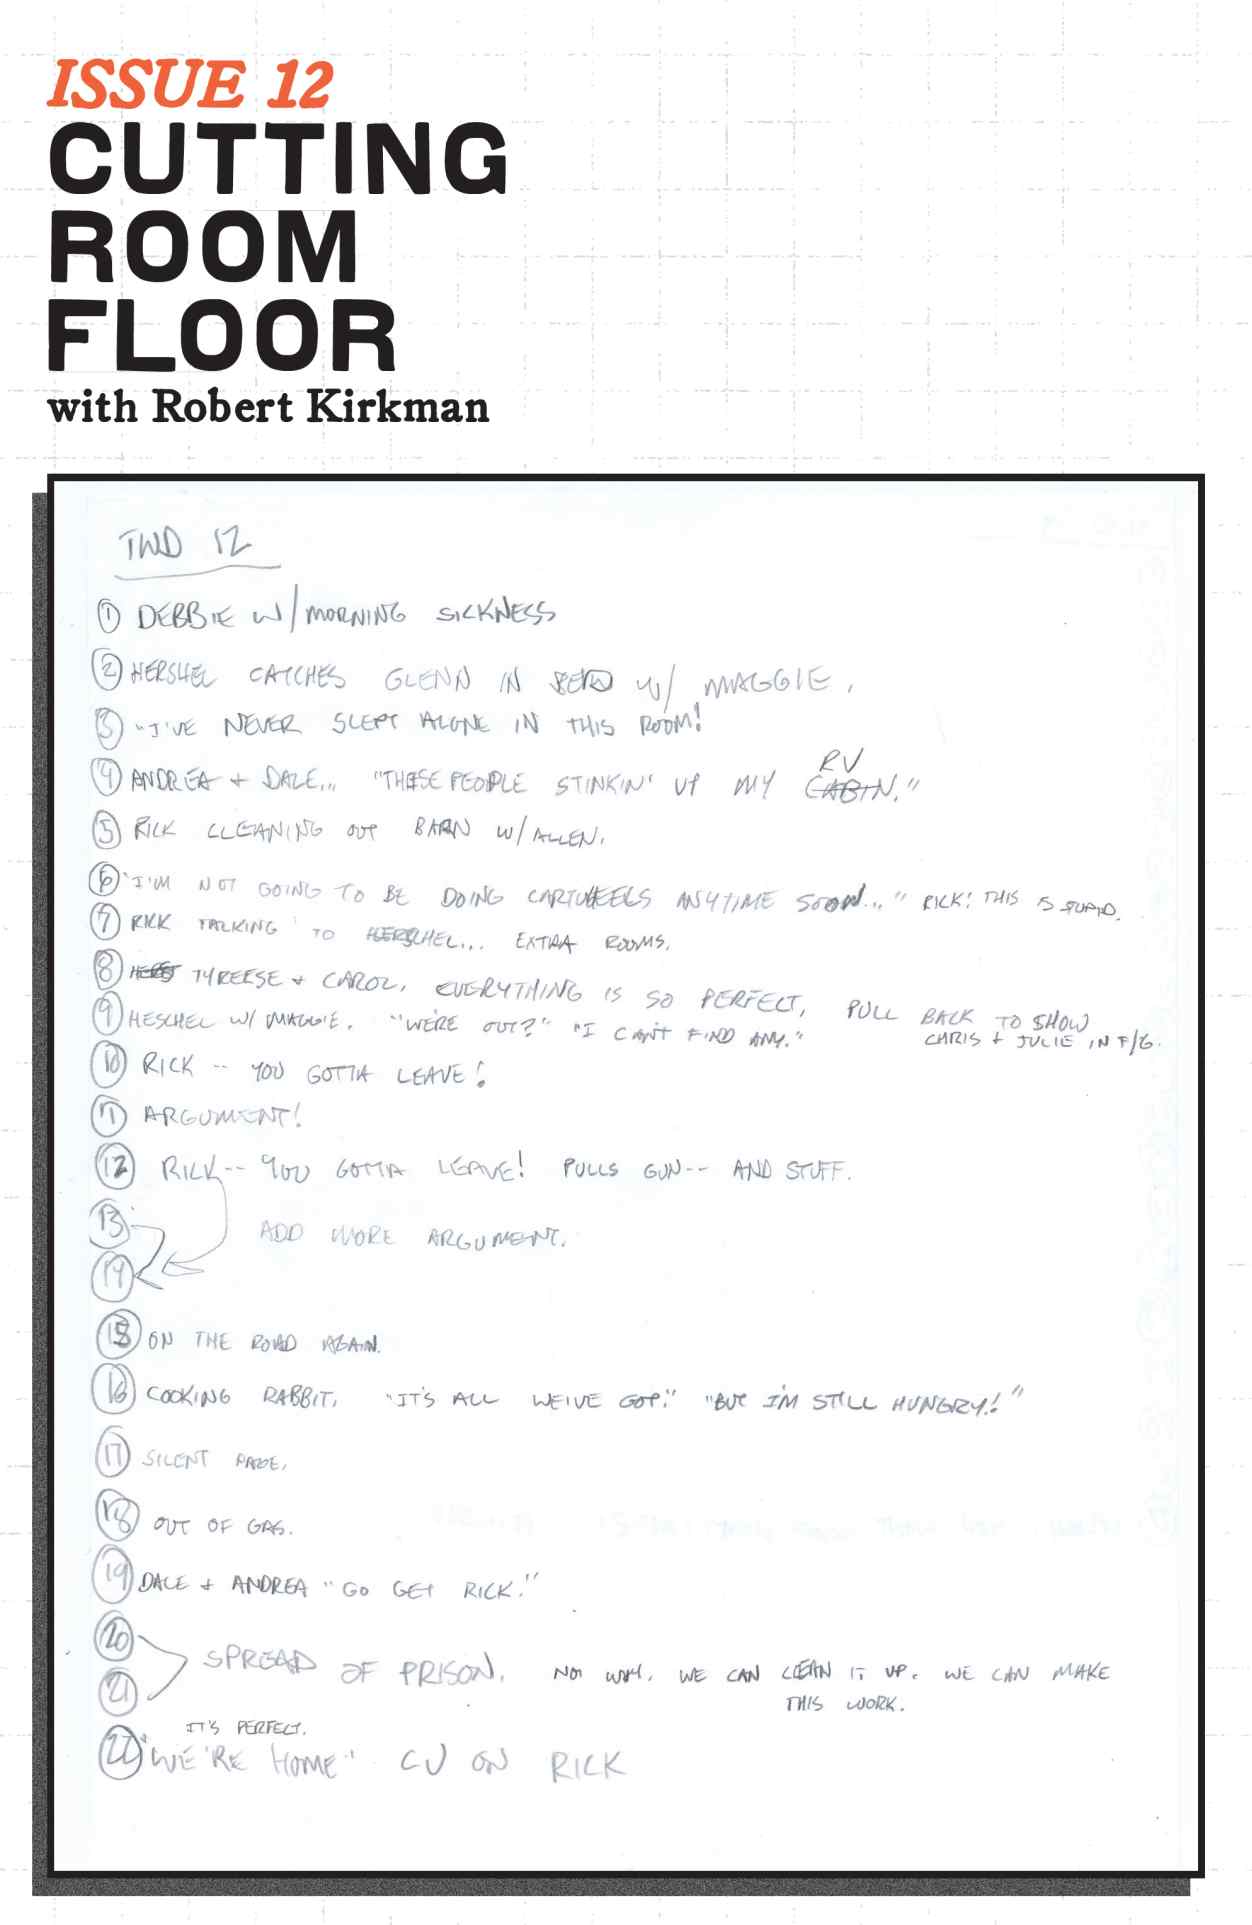 ISSUE 12
CUTTING
ROOM
FLOOR
with Robert Kirkman
TWD 12
1 DEBBIE W/MORNING SICKNESS
2 HERSHEL CATCHES GLENN IN BED W/ MAGGIE.
3 "I'VE NEVER SLEPT ALONE IN THIS ROOM!
RV
4 ANDREA + DALE... "THESE PEOPLE STINKIN' UP MY CABIN."
5 RICK CLEANING OUT BARN W/ALLEN.
6 "I'M NOT GOING TO BE DOING CARTWHEELS ANYTIME SOON..." RICK! THIS IS STUPID.
7 RICK TALKING TO HERSCHEL... EXTRA ROOMS.
8 TYREESE + CAROL, EVERYTHING IS SO PERFECT, PULL BACK TO SHOW
CHRIS + JULIE IN F/G.
9 HESCHEL W/ MAGGIE. "WE'RE OUT?" "I CAN'T FIND ANY."
10 RICK -- YOU GOTTA LEAVE!
11 ARGUMENT!
12 RICK-- YOU GOTTA LEAVE! PULLS GUN-- AND STUFF.
13 ADD MORE ARGUMENT.
14
15 ON THE ROAD AGAIN.
16 COOKING RABBIT. "IT'S ALL WE'VE GOT." "BUT I'M STILL HUNGRY!"
17 SILENT PAGE.
18 OUT OF GAS.
19 DALE + ANDREA "GO GET RICK."
20 SPREAD OF PRISON. NO WE CAN CLEAN IT UP. WE CAN MAKE
THIS WORK.
21
IT'S PERFECT.
22 "WE'RE HOME" CU ON RICK